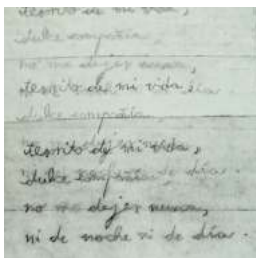 tesorito de mi vida,
dulce compañía
no me dejes nunca,
tesorito de mi vida,
dulce compañía,
tesorito de mi vida,
dulce compañía
no me dejes nunca,
ni de noche ni de día.